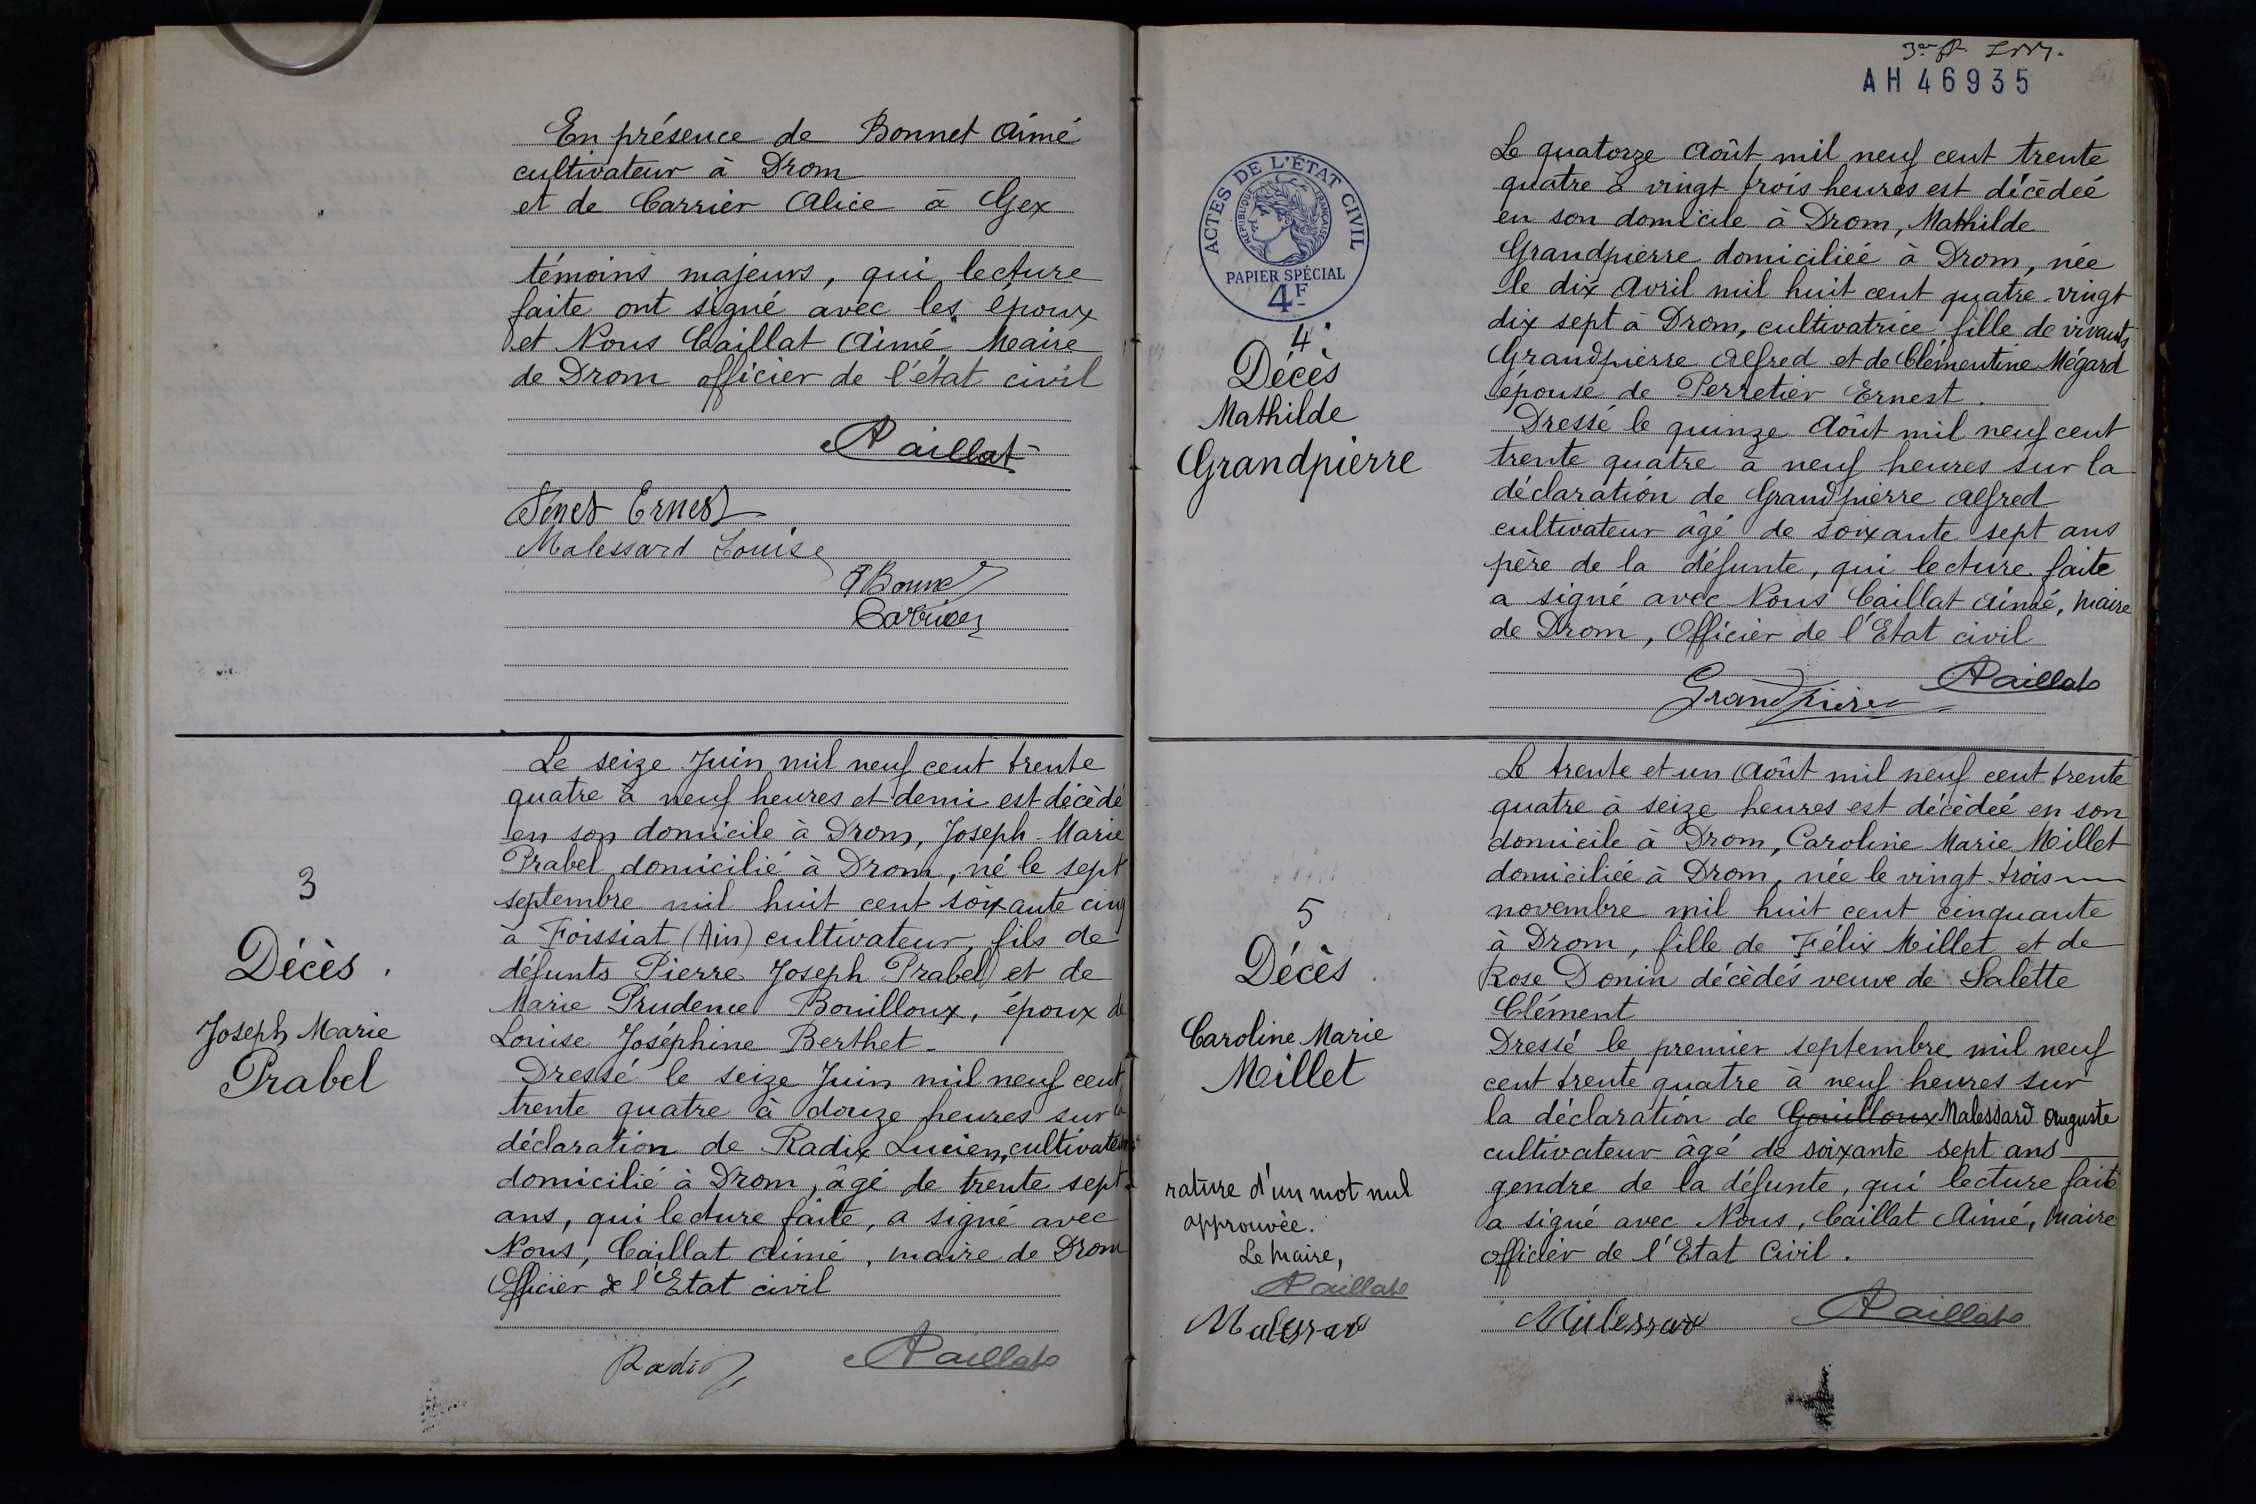 En présence de Bonnet Aimé
cultivateur à Drom
et de Carrier Alice à Gex
témoins majeurs, qui lecture
faite ont signé avec les époux
et Nous Caillat Aimé Maire
de Drom officier de l'état civil
ACaillat
Ernest
Malessard Louise
ABonnet
Carrier
3
Décès.
Joseph Marie
Prabel
Le seize Juin mil neuf cent trente
quatre à neuf heures et demi est décèdé
en son domicile à Drom, Joseph-Marie
Prabel domicilié à Drom, né le sept
septembre mil huit cent soixante cinq
à Foissiat (Ain) cultivateur, fils de
défunts Pierre Joseph Prabel et de
Marie Prudence Bouilloux, époux de
Louise Joséphine Berthet.
Dressé le seize Juin mil neuf cent
trente quatre à douze heures sur la
déclaration de Radix Lucien, cultivateur
domicilié à Drom, âgé de trente sept
ans, qui lecture faite, a signé avec
Nous, Caillat Aimé, maire de Drom
Officier de l'Etat civil
Radix ACaillat
AH 46935
ACTES DE L'ÉTAT CIVIL
RÉPUBLIQUE FRANÇAISE
PAPIER SPÉCIAL
4F
4
Décès
Mathilde
Grandpierre
Le quatorze Août mil neuf cent trente
quatre à vingt trois heures est décèdeé
en son domicile à Drom, Mathilde
Grandpierre domiciliéé à Drom, née
le dix Avril mil huit cent quatre-vingt
dix sept à Drom, cultivatrice fille de vivants
Grandpierre Alfred et de Clémentine Mégard
épouse de Perretier Ernest.
Dressé le quinze Août mil neuf cent
trente quatre à neuf heures sur la
déclaration de Grandpierre Alfred
cultivateur âgé de soixante sept ans
père de la défunte, qui lecture faite
a signé avec Nous Caillat Aimé, maire
de Drom, Officier de l'Etat civil
Grandpierre ACaillat
5
Décès
Caroline Marie
Millet
rature d'un mot nul
approuvée.
Le Maire,
ACaillat
Malessard
Le trente et un Août mil neuf cent trente
quatre à seize heures est décèdeé en son
domicile à Drom, Caroline Marie Millet
domiciliéé à Drom, née le vingt-trois
novembre mil huit cent cinquante
à Drom, fille de Félix Millet et de
Rose Donin décèdés veuve de Salette
Clément
Dressé le premier septembre mil neuf
cent trente quatre à neuf heures sur
la déclaration de Gouilloux Malessard Auguste
cultivateur âgé de soixante sept ans
gendre de la défunte, qui lecture faite
a signé avec Nous, Caillat Aimé, maire
officier de l'Etat Civil.
Malessard ACaillat